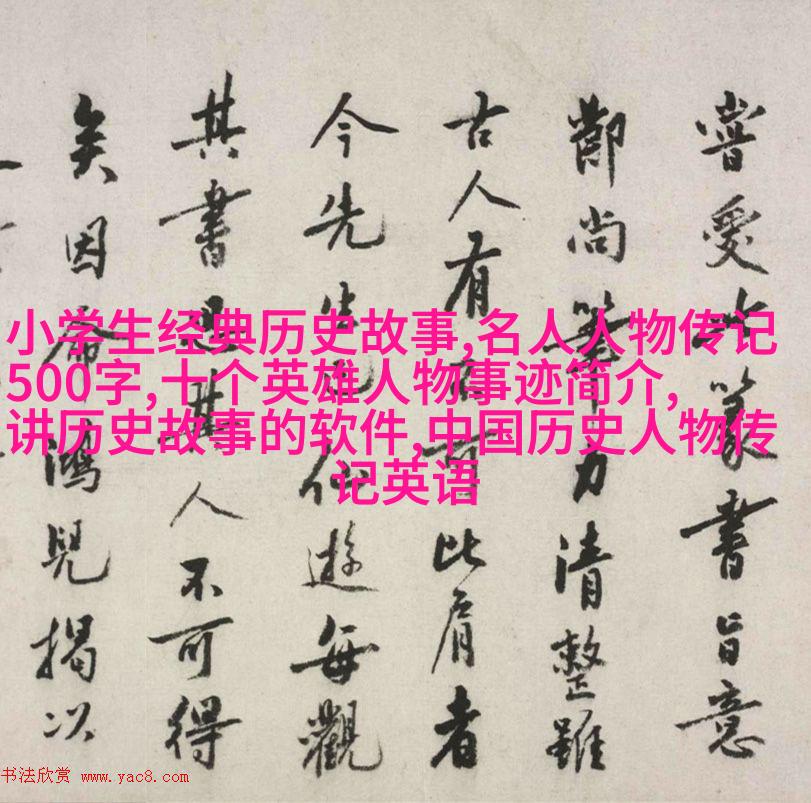 小学生经典历史故事,名人人物传记
500字,十个英雄人物事迹简介,
讲历史故事的软件,中国历史人物传
记英语
嘗愛篆書旨意
尚筆力清整雖
古人有比肩者
今先生已仙遊每觀
其書思其人不可得
矣因命鴻兒揭以
书法欣赏 www.yac8.com